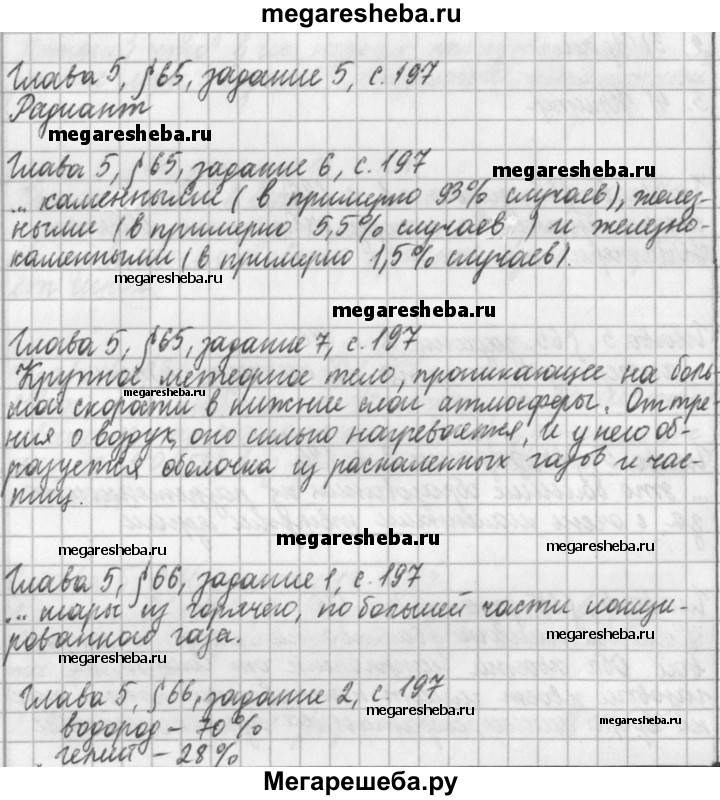 megaresheba.ru
Глава 5, § 65, задание 5, с. 197
Радиант
megaresheba.ru
Глава 5, § 65, задание 6, с. 197
megaresheba.ru
... каменными (в примерно 93% случаев), желез-
ными (в примерно 5,5% случаев) и железно-
каменными (в примерно 1,5% случаев).
megaresheba.ru
megaresheba.ru
Глава 5, § 65, задание 7, с. 197
Крупное метеорное тело, проникающее на боль-
megaresheba.ru
шой скорости в нижние слои атмосферы. От тре-
ния о воздух, оно сильно нагревается, и у него об-
разуется оболочка из раскаленных газов и час-
тиц.
megaresheba.ru
megaresheba.ru
megaresheba.ru
Глава 5, § 66, задание 1, с. 197
... шары из горячего, по большей части иони-
зированного газа.
megaresheba.ru
megaresheba.ru
Глава 5, § 66, задание 2, с. 197
megaresheba.ru
megaresheba.ru
водород – 70%
гелий – 28%
Мегарешеба.ру